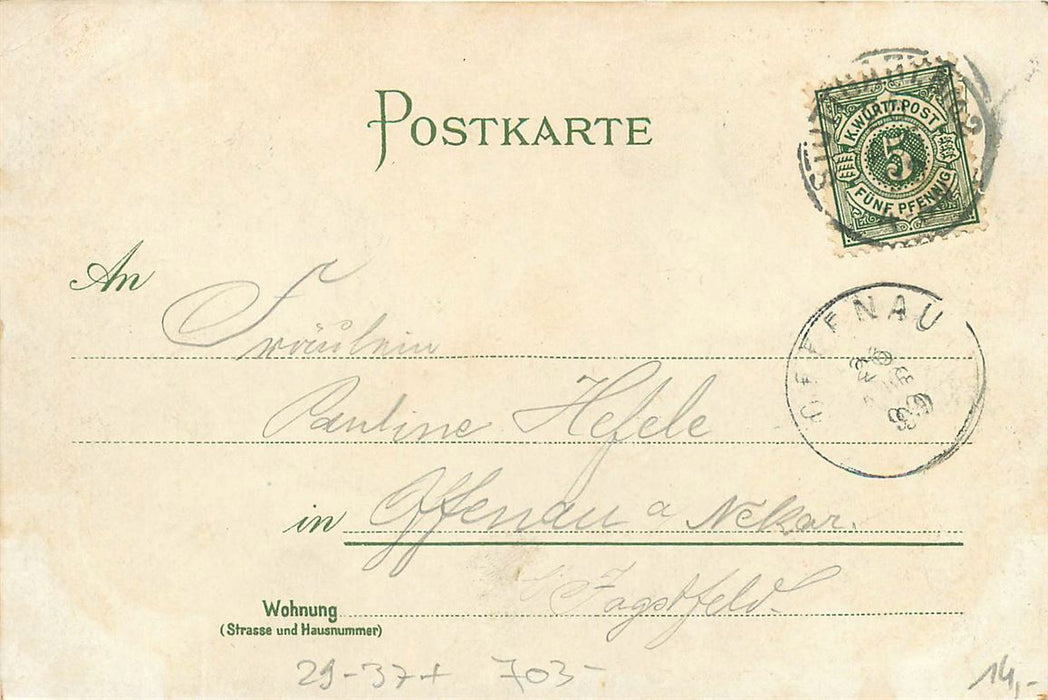 POSTKARTE
K. WÜRTT. POST
5
FÜNF PFENNIG
OFFENAU
An
Fräulein
Pauline Hefele
in Offenau a Nekar.
Jagstfeld.
Wohnung
(Strasse und Hausnummer)
29-37+ 703-
14,-